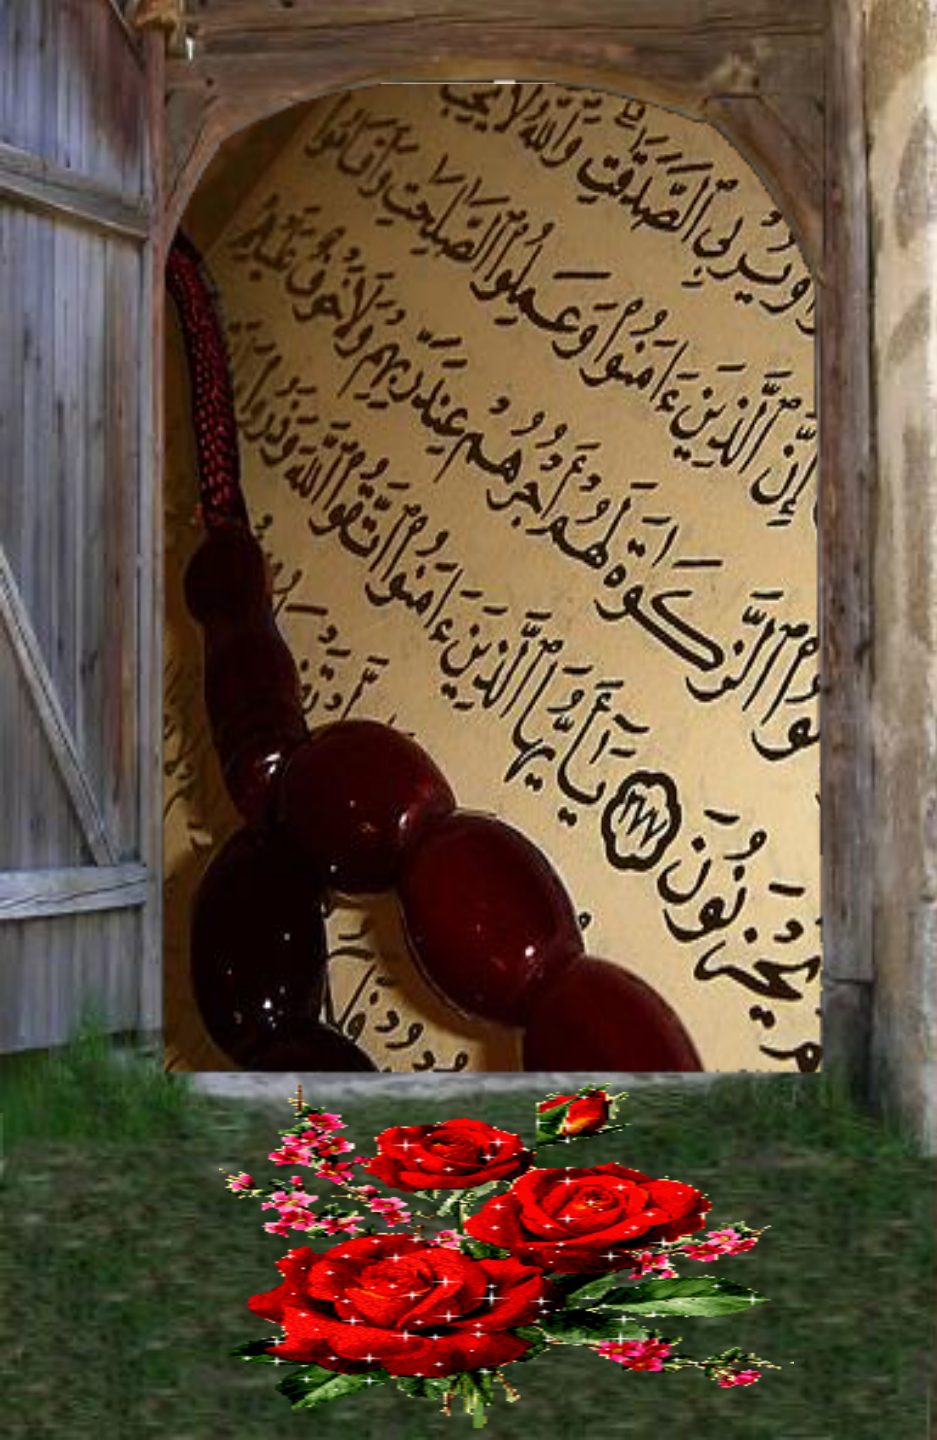 وَيُرْبِي ٱلصَّدَقَٰتِ ۗ وَٱللَّهُ لَا يُحِبُّ
إِنَّ ٱلَّذِينَ ءَامَنُوا۟ وَعَمِلُوا۟ ٱلصَّٰلِحَٰتِ وَأَقَامُوا۟
ٱلزَّكَوٰةَ لَهُمْ أَجْرُهُمْ عِندَ رَبِّهِمْ وَلَا خَوْفٌ عَلَيْهِمْ
يَحْزَنُونَ ٢٧٧ يَٰٓأَيُّهَا ٱلَّذِينَ ءَامَنُوا۟ ٱتَّقُوا۟ ٱللَّهَ وَذَرُوا۟